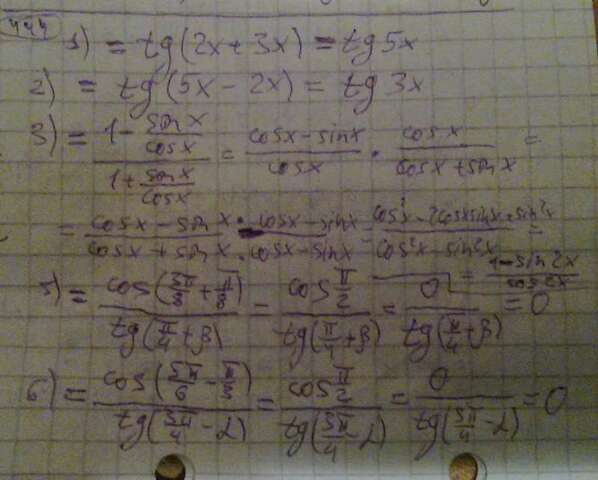 444
1) = tg(2x + 3x) = tg 5x
2) = tg(5x - 2x) = tg 3x
3) = (1 - sin x/cos x)/(1 + sin x/cos x) = (cos x - sin x)/cos x · cos x/(cos x + sin x) =
= (cos x - sin x)/(cos x + sin x) · (cos x - sin x)/(cos x - sin x) = (cos²x - 2cos x sin x + sin²x)/(cos²x - sin²x) =
= (1 - sin 2x)/cos 2x
5) = cos(3π/8 + π/8)/tg(π/4 + β) = cos π/2/tg(π/4 + β) = 0/tg(π/4 + β) = 0
6) = cos(5π/6 - π/3)/tg(3π/4 - α) = cos π/2/tg(3π/4 - α) = 0/tg(3π/4 - α) = 0